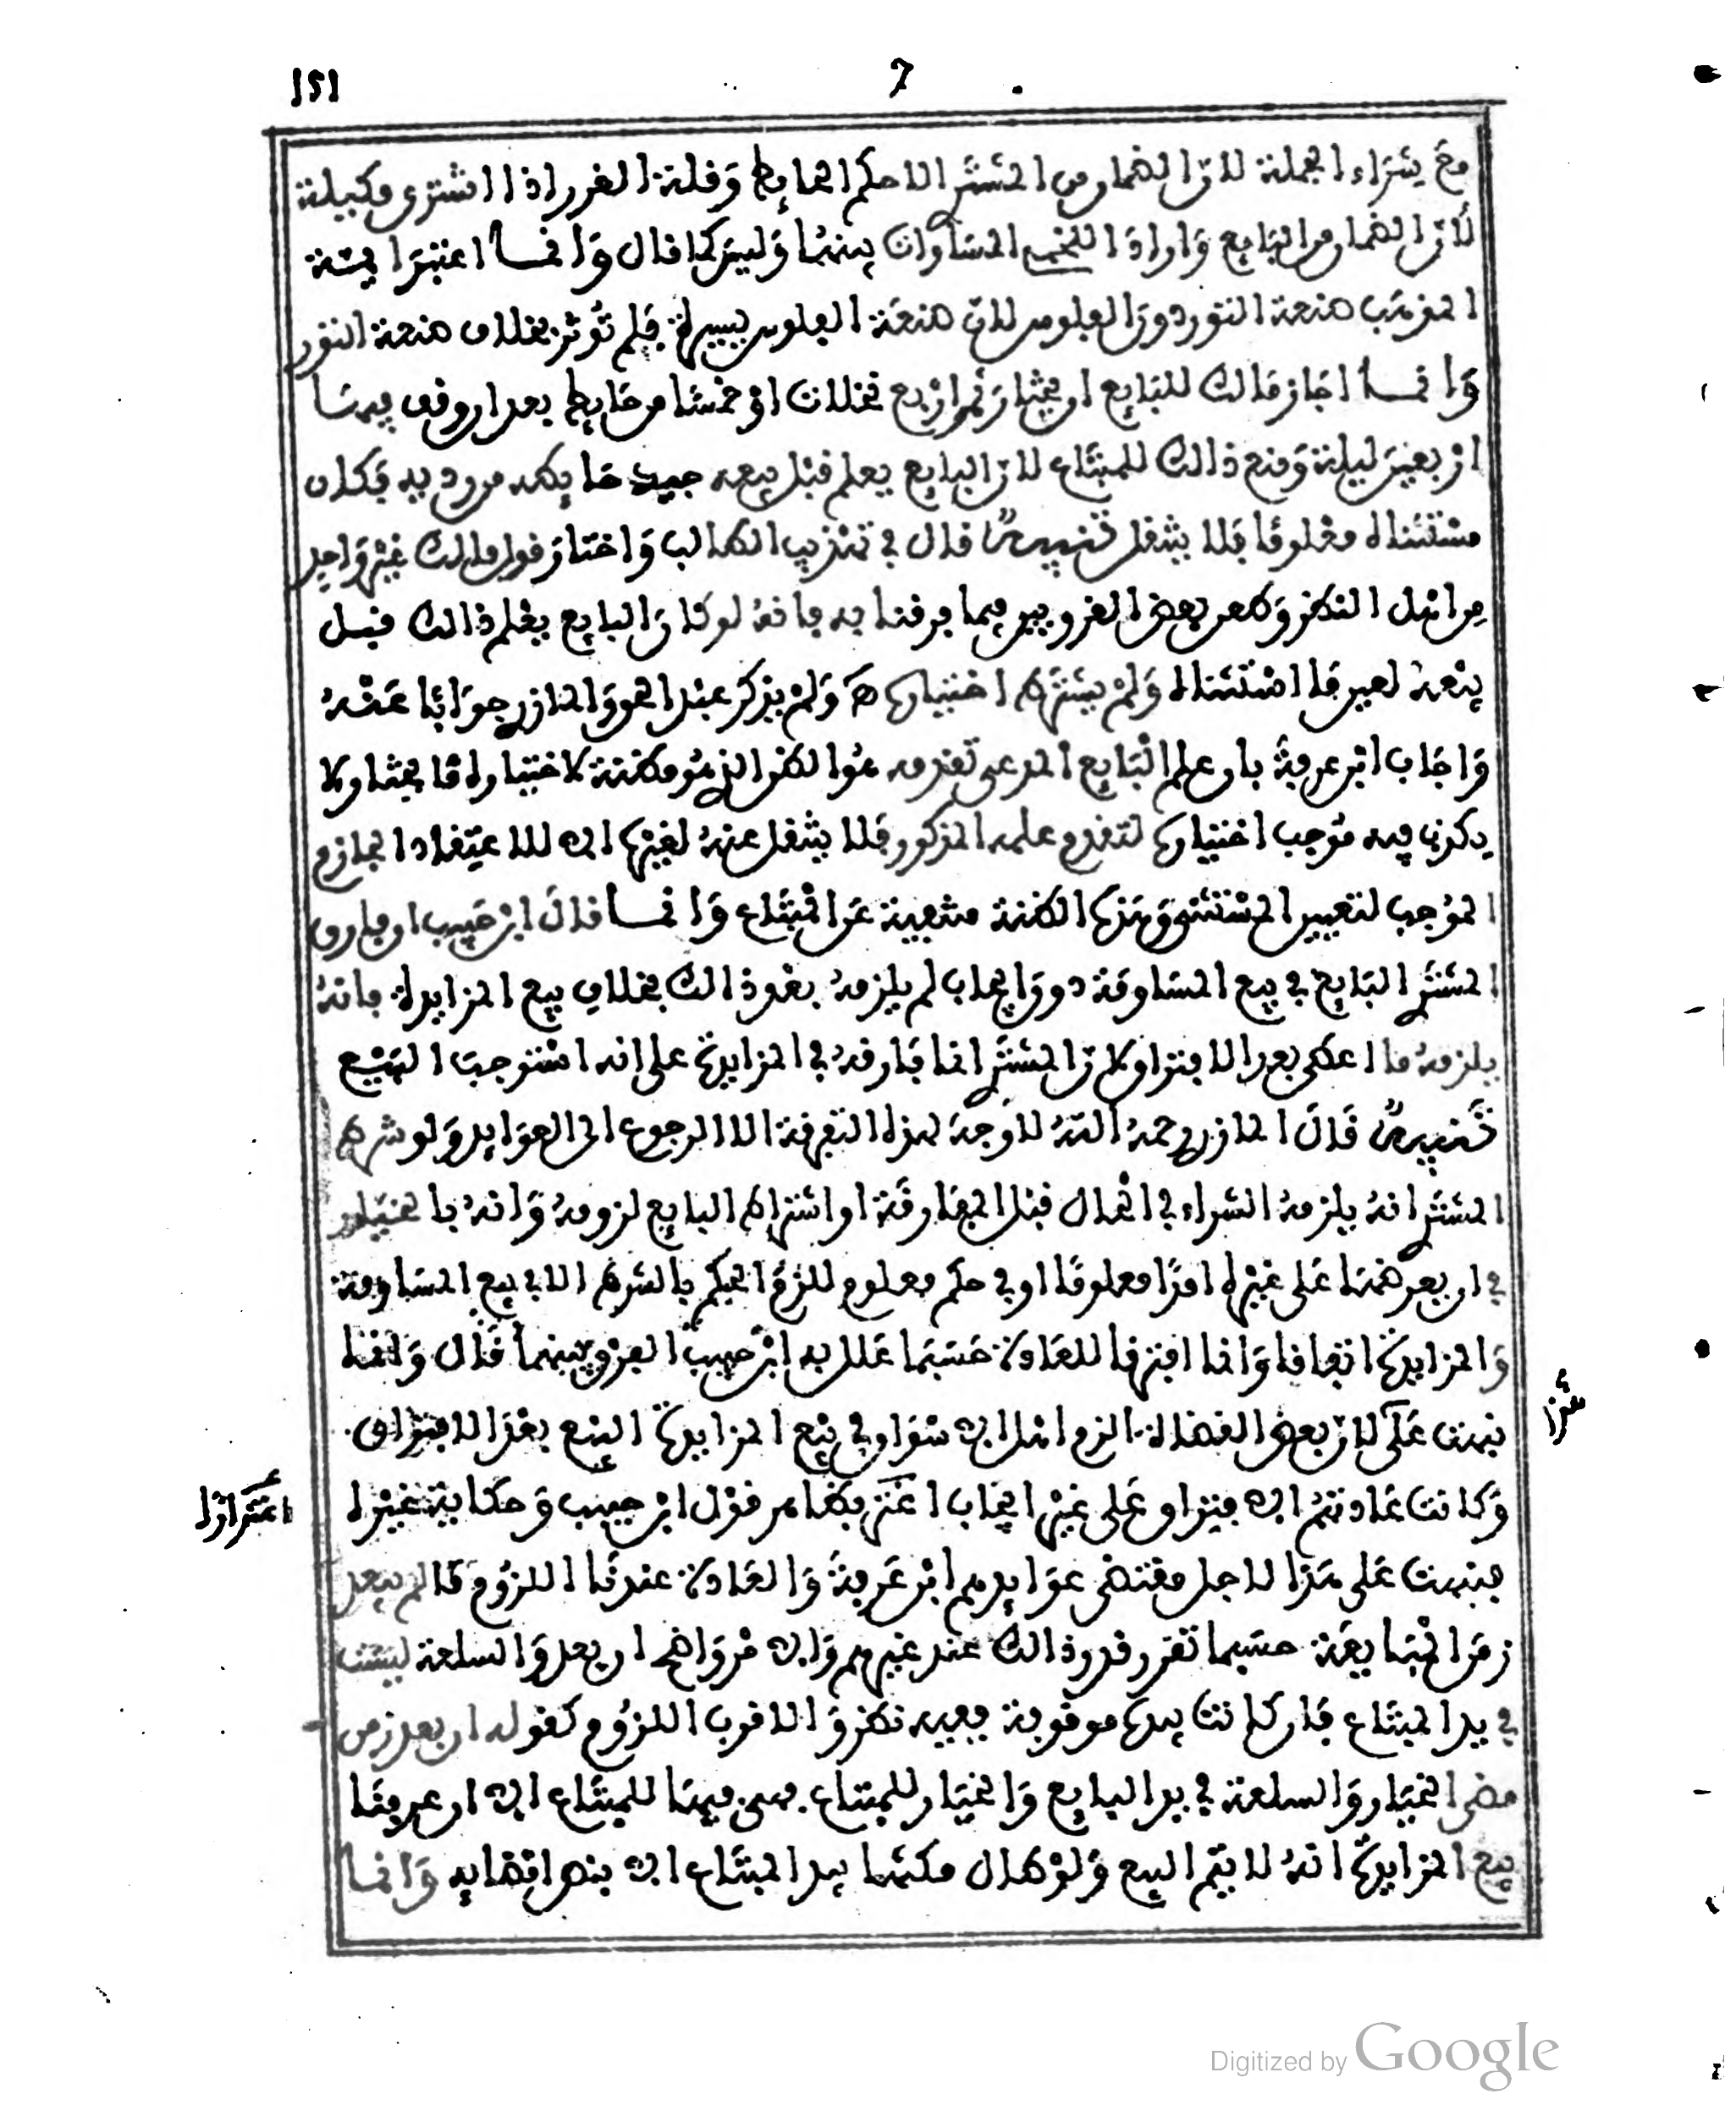 151
7
مع شراء الجملة لان الضمان من المشتر لا حكم الحايط وقلة الغرر اذا اشترى مكيلة
لان الضمان من البايع واراد اللخمي المساوات بينهما وليس كما قال وانما اعتبرا يمة
المذهب صنعة النور دون العلوس لان صنعة العلوس يسيرة فلم تؤثر بخلاف صنعة النور
وانما اجاز مالك للبايع ان يختار ثمر اربع نخلات او خمسا من حايط بعد ان وقف فيها
اربعين ليلة ومنع ذالك للمبتاع لان البايع يعلم قبل بيعه جيد حايطه من رديه فكان
مستثناه معلوما فلا ينتقل تنبيه قال في تهذيب الطالب واختار قول مالك غير واحد
من اهل النظر وطعن بعض القرويين فيما فرقنا به بانه لو كان البايع يعلم ذالك قبل
بيعه لعين ما استثناه ولم يشترط اختيارها هـ ولم يذكر عبد الحق والمازري جوابا عنه
واجاب ابن عرفة بان علم البايع المدعى تقدمه هو الظن الذي هو مظنة لاختياره ما يختار ولا
يكون فيه موجب اختيارها لتقدم علمه المذكور فلا ينتقل عنه لغيرها اي لا لاعتقاد الجازم
الموجب لتعيين المستثنى وهذه الظنة منفية عن المبتاع وانما قال ابن حبيب ان فارق
المشتر البايع في بيع المساومة دون ايجاب لم يلزمه بعد ذالك بخلاف بيع المزايدة فانه
يلزمه ما اعطى بعد الافتراق لان المشتر انما فارقه في المزايدة على انه استوجب البيع
تنبيه قال المازري رحمه الله لا وجه لهذه التفرقة الا الرجوع الى العوايد ولو شرط
المشتر انه يلزمه الشراء في الحال قبل المفارقة او اشترط البايع لزومه وانه بالخيار
في ان يعرضها على غيره امدا معلوما او في حكم معلوم للزم الحكم بالشرط الا في بيع المساومة
والمزايدة اتفاقا وانما افترقا للعادة حسبما علل به ابن حبيب الفرق بينهما قال وانما
نبهت على لان بعض القضاة الزم اهل اي سوق في بيع المزايدة البيع بعد الافتراق
شرا
وكانت عادتهم اي فتراق على غير ايجاب اغتر بظاهر قول ابن حبيب وحكاية غيره
اغترارا
فنبهت على هذا لاجل مقتضى عوايدهم ابن عرفة والعادة عندنا اللزوم ما لم يبعد
زمن المبايعة حسبما تقرر قدر ذالك عند غيرهم واي مر واضح ان بعد والسلعة ليست
في يد المبتاع فان كانت بيده موقوفة ففيه نظر والاقرب اللزوم كقوله ان بعد زمن
مضى الخيار والسلعة في يد البايع والخيار للمبتاع فهي فيها للمبتاع اي ان عرفنا
بيع المزايدة انه لا يتم البيع ولو طال مكثها بيد المبتاع اي بنص امضايه وانما
Digitized by Google